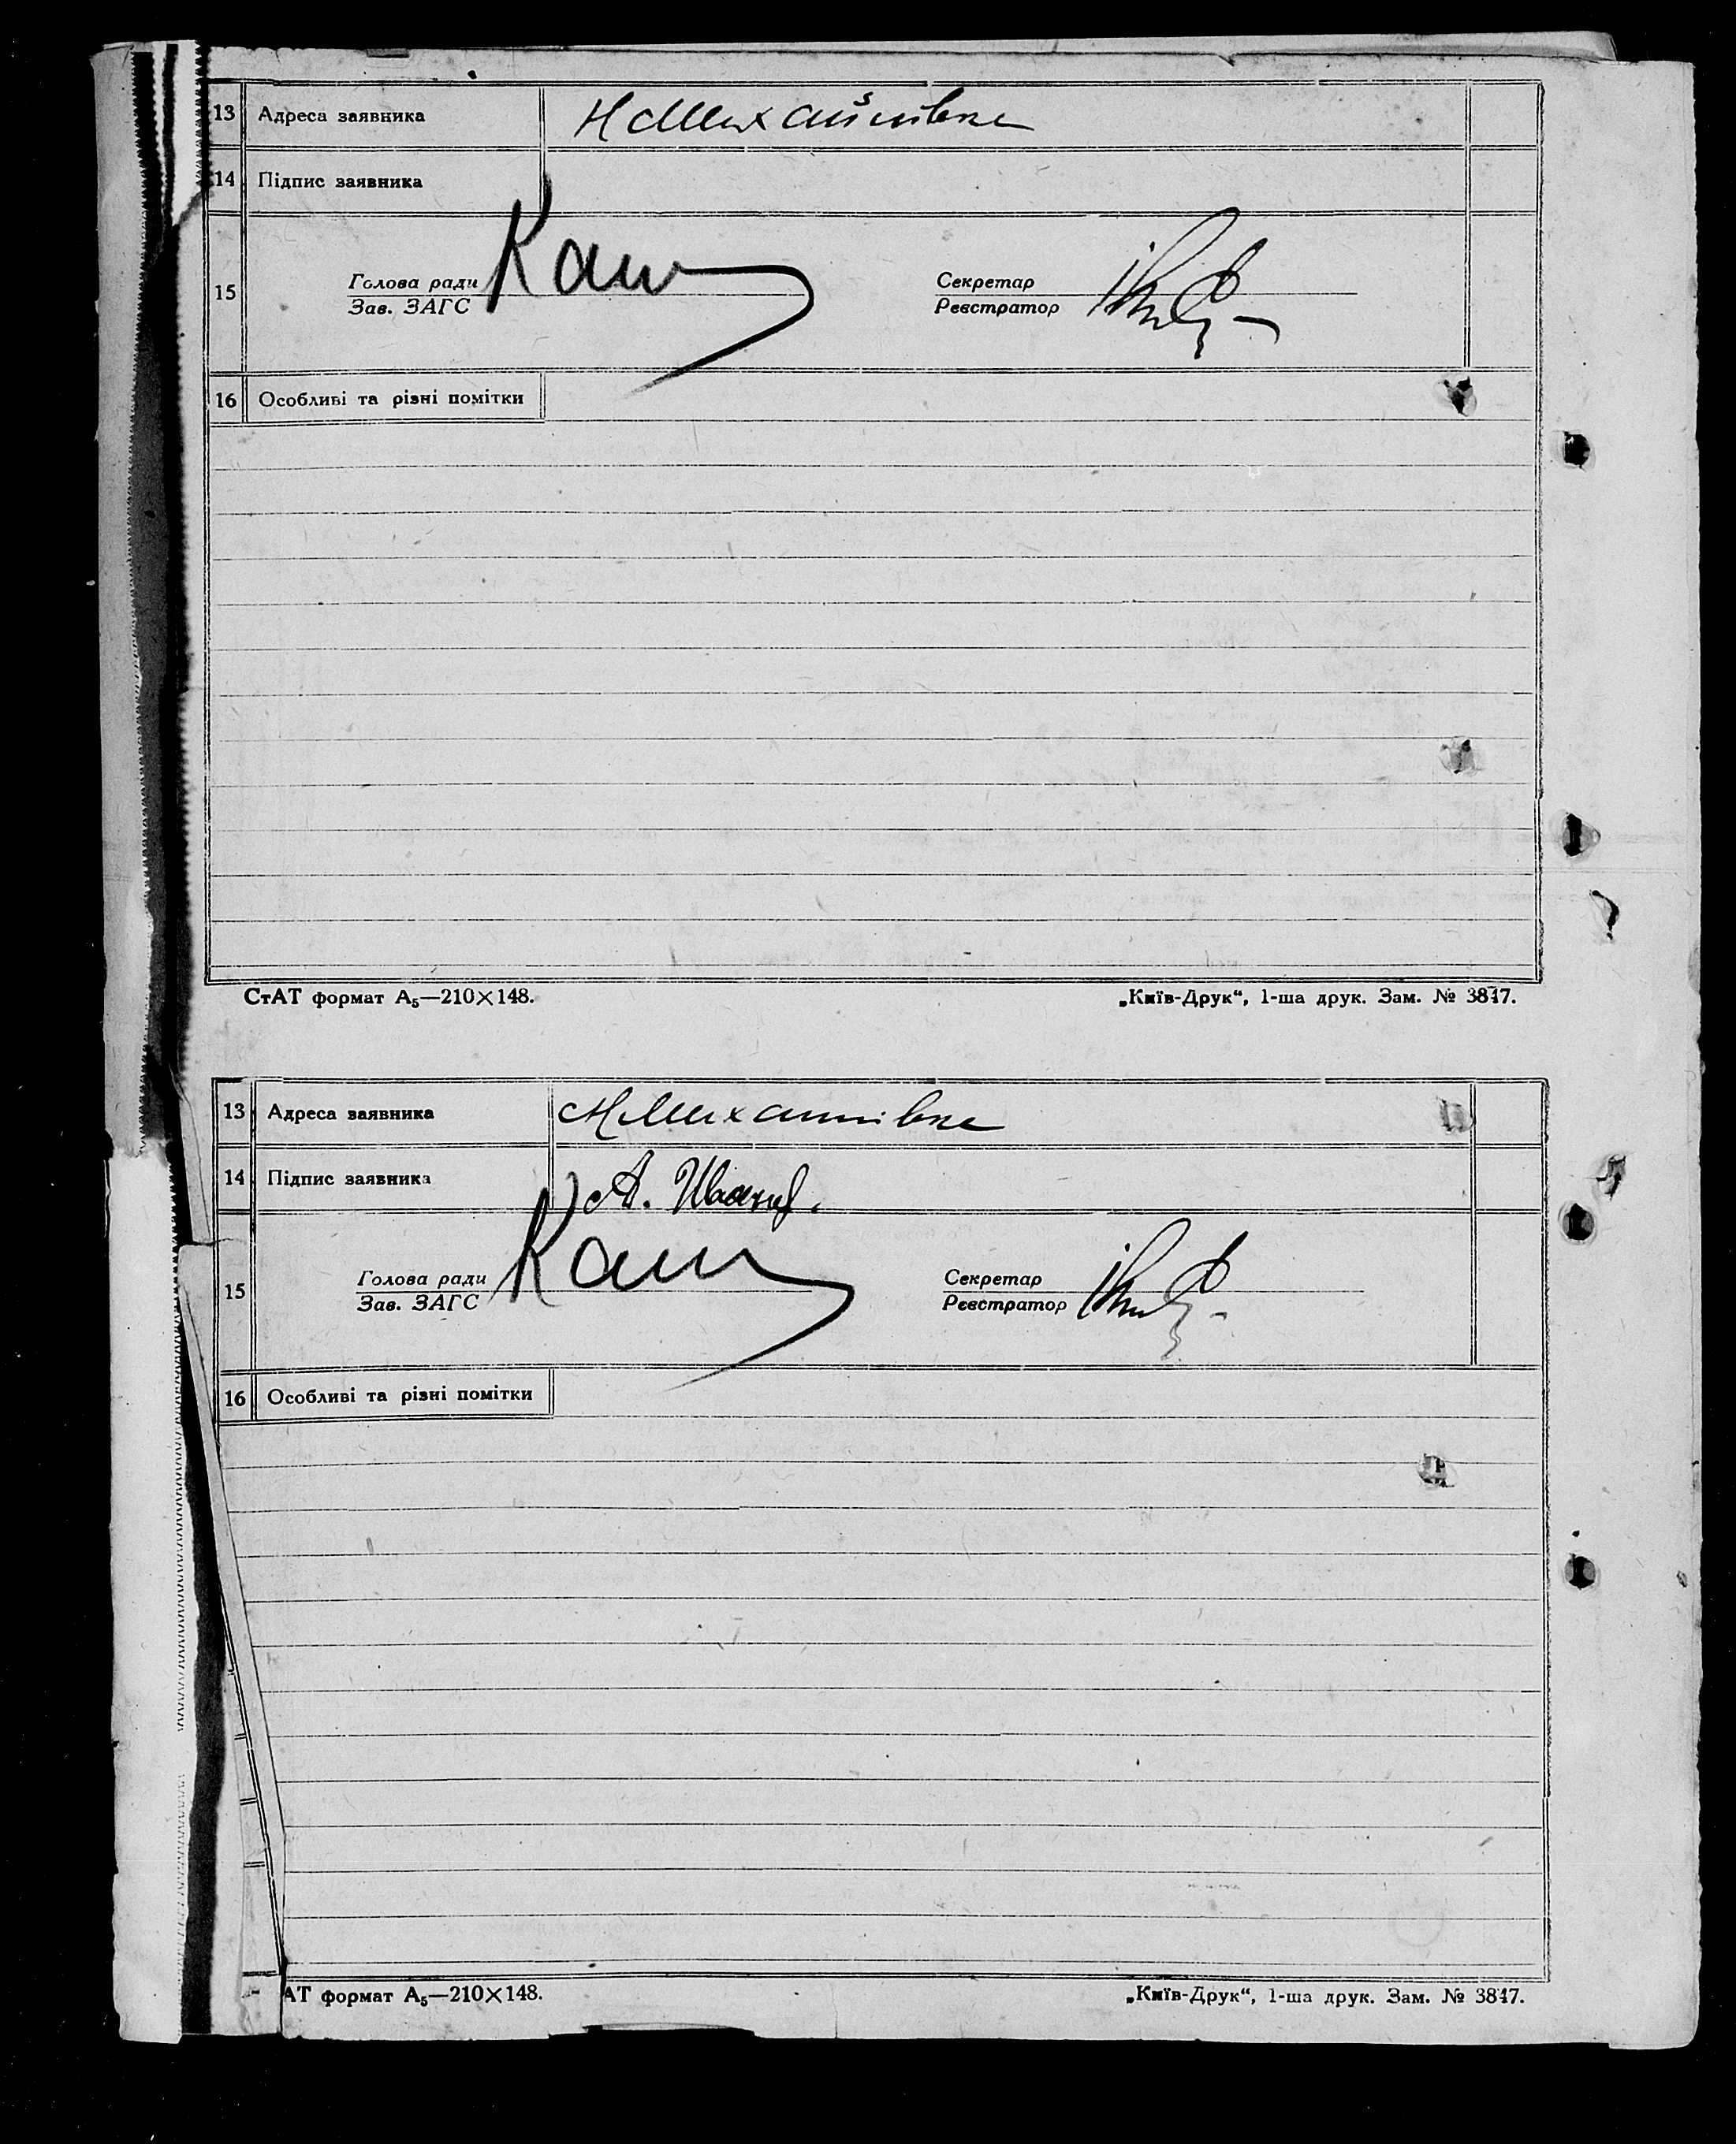 13 Адреса заявника Н Михайлівка
14 Підпис заявника
15 Голова ради Секретар
Зав. ЗАГС Реєстратор
16 Особливі та різні помітки
СтАТ формат А₅—210×148. „Київ-Друк“, 1-ша друк. Зам. № 3847.
13 Адреса заявника Н Михайлівка
14 Підпис заявника А.
15 Голова ради Секретар
Зав. ЗАГС Реєстратор
16 Особливі та різні помітки
АТ формат А₅—210×148. „Київ-Друк“, 1-ша друк. Зам. № 3847.